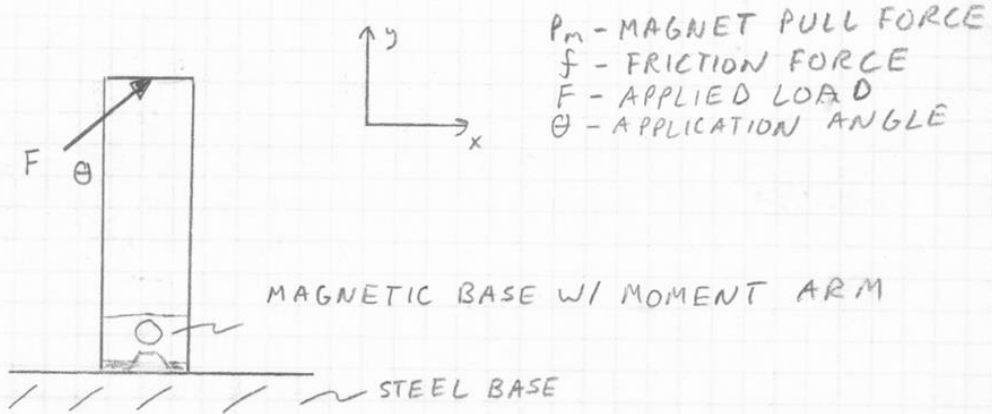 y
x
Pm - MAGNET PULL FORCE
f - FRICTION FORCE
F - APPLIED LOAD
θ - APPLICATION ANGLE
F
θ
MAGNETIC BASE W/ MOMENT ARM
STEEL BASE